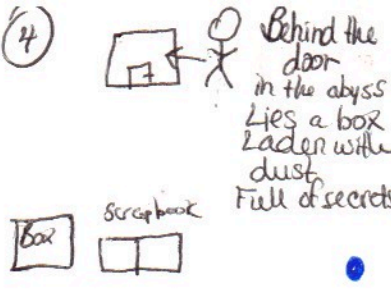 4
Behind the
door
in the abyss
Lies a box
Laden with
dust
Full of secrets
scrapbook
Box